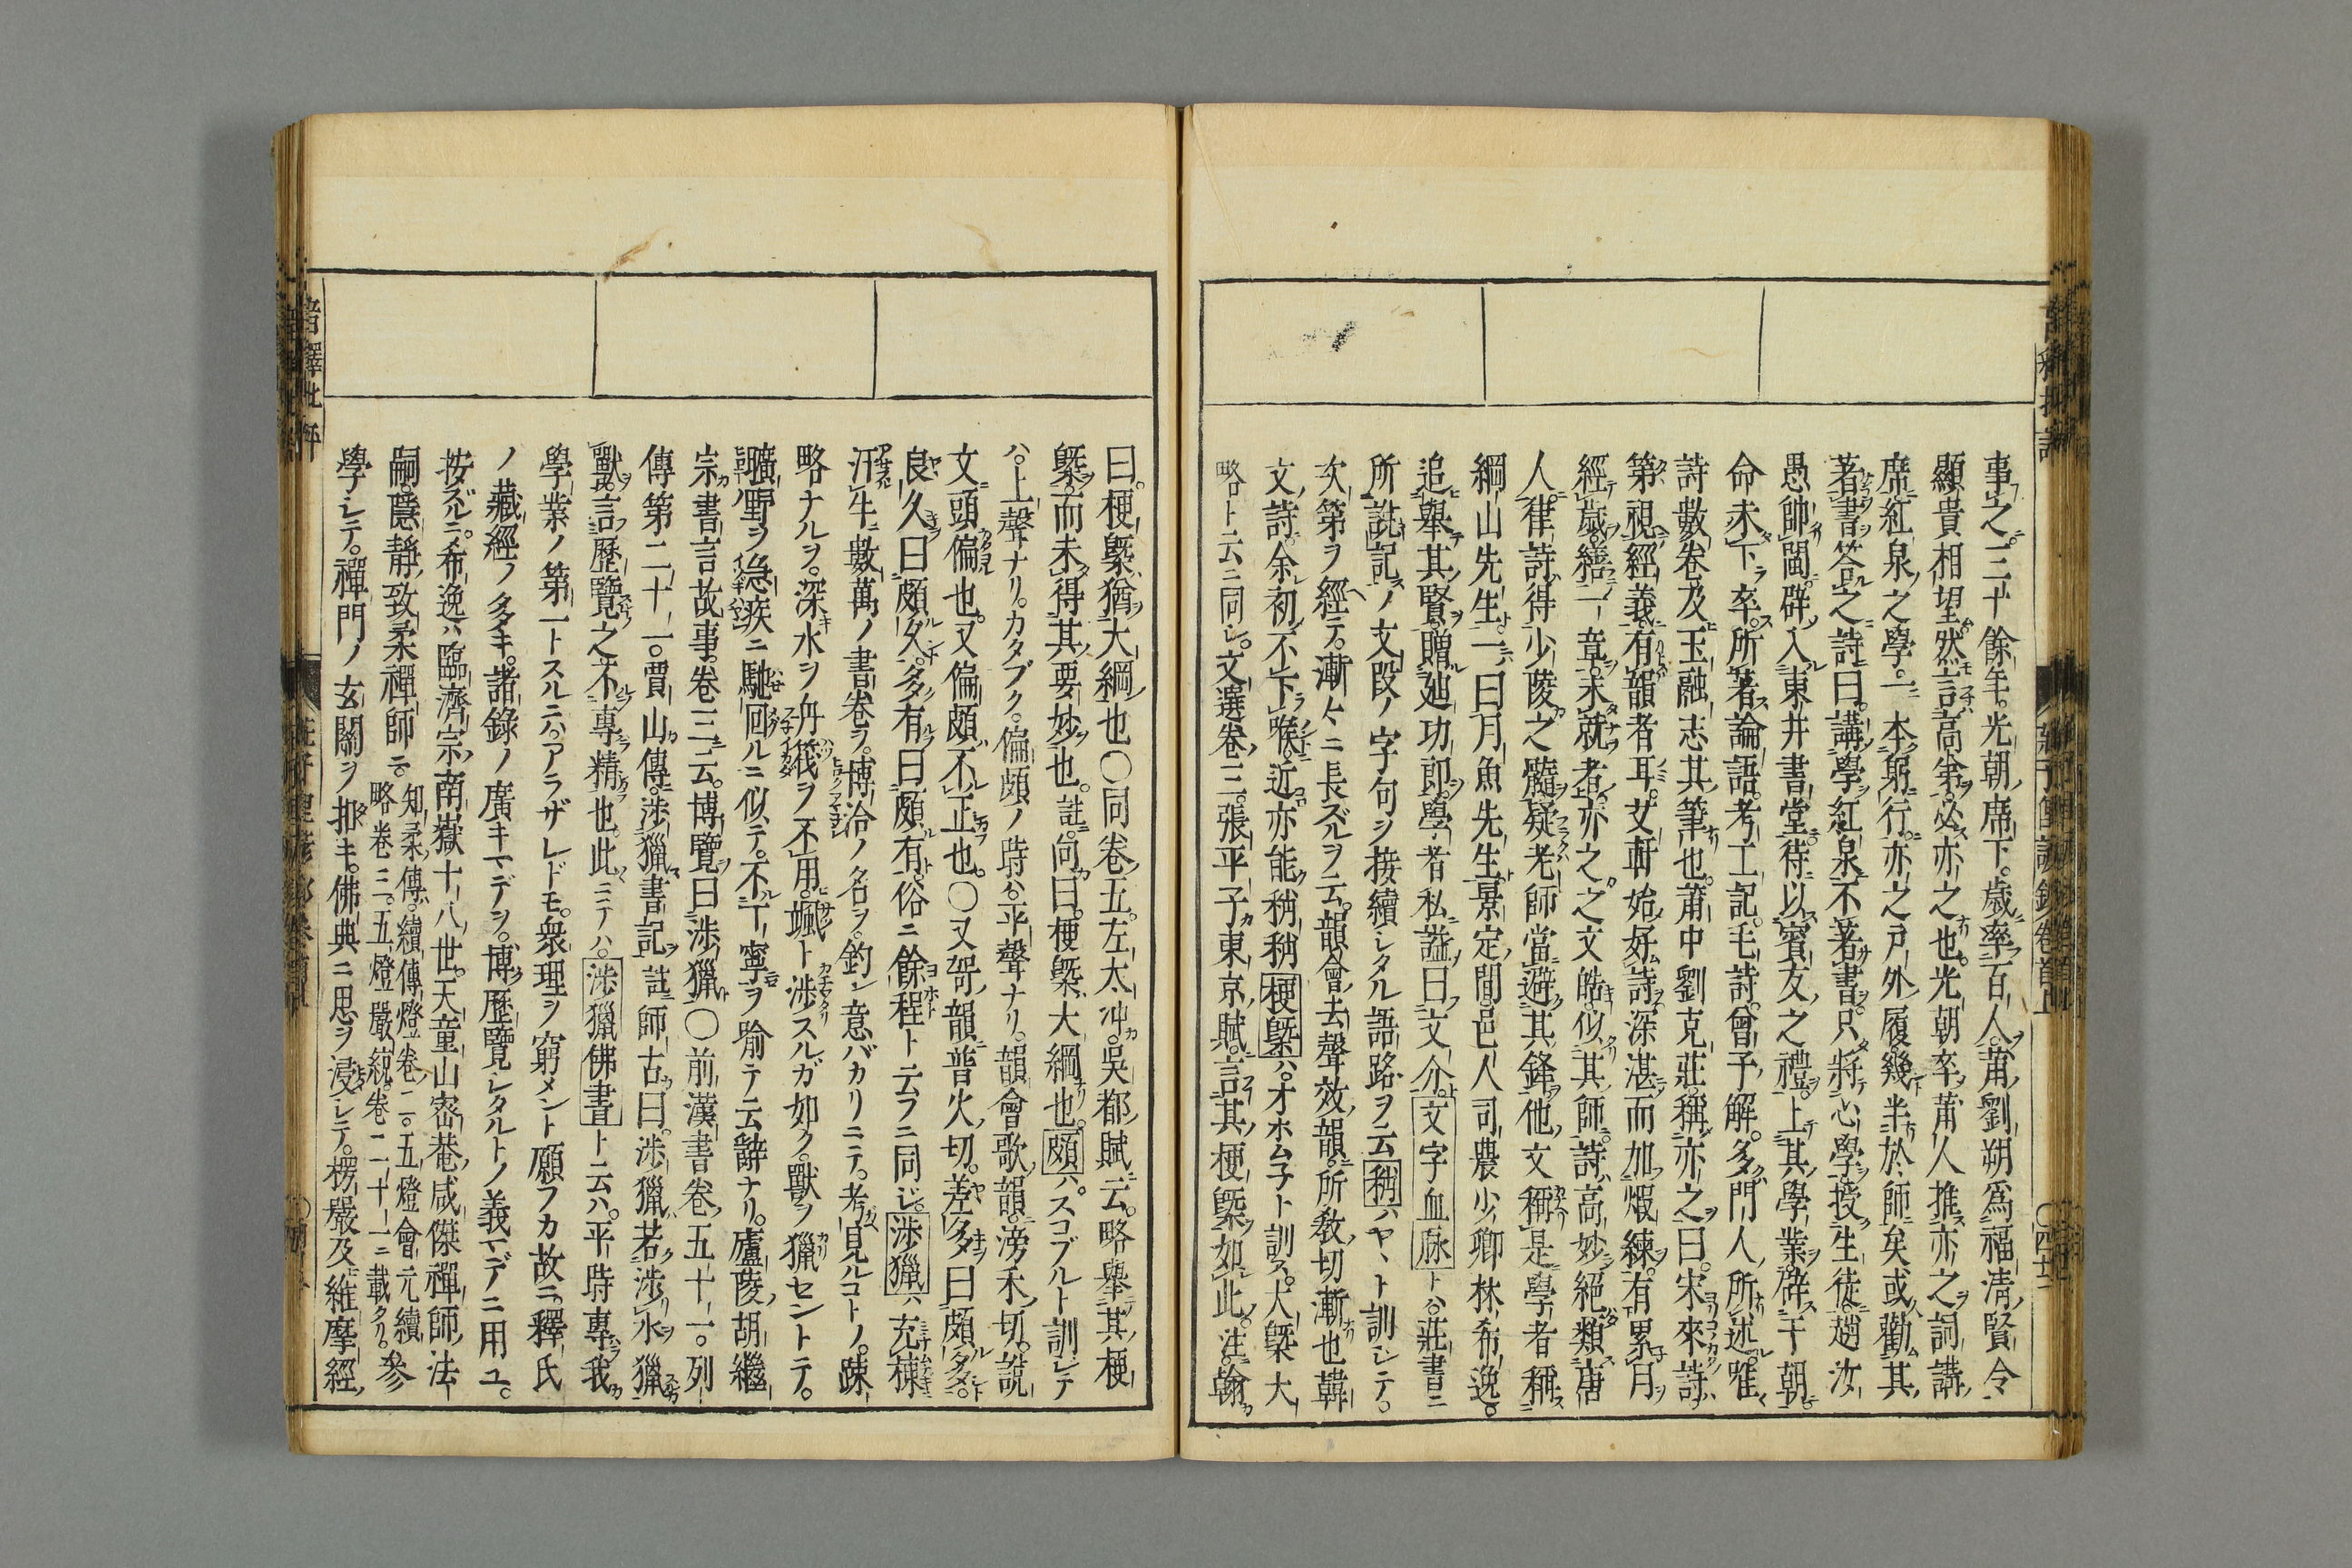 事之三十餘年光朝席下歲率百人莆劉朔爲福淸賢令
顯貴相望然言高第必亦之也光朝卒莆人推亦之詞講
席紅泉之學一本躬行亦之戸外履幾半於師矣或勸其
著書答之詩曰講學紅泉不著書只將心學授生徒趙汝
愚帥閩辟入東井書堂待以賓友之禮上其學業辟于朝
命未下卒所著論語考工記毛詩曾子解多門人所述唯
詩數卷及玉融志其筆也莆中劉克莊稱亦之曰宋來詩
第視經義有韻者耳艾軒始好詩深湛而加煆練有累月
經歲繕一章未就者亦之之文皓似其師詩高妙絕類唐
人律詩得少陵之髓疑老師當避其鋒他文稱是學者稱
綱山先生一曰月魚先生景定間邑人司農少卿林希逸
追舉其賢贈廸功郎學者私謚曰文介文字血脉トハ莊書ニ
所謂記ノ文段ノ字句ヲ接續シタル語路ヲ云稍ハヤヽト訓シテ
次第ヲ經テ漸々ニ長ズルヲ云韻會去聲效韻所敎切漸也韓
文詩余初不下喉近亦能稍稍梗槩ハオホムネト訓ス大槩大
略ト云ニ同シ文選卷三張平子東京賦言其梗槩如此注翰
曰梗槩猶大綱也〇同卷五左太冲吳都賦云略舉其梗
槩而未得其要妙也註向曰梗槩大綱也頗ハスコブルト訓シテ
ハ上聲ナリカタブク偏頗ノ時ハ平聲ナリ韻會歌韻滂禾切說
文頭偏也又偏頗不正也〇又哿韻普火切差多曰頗多
良久曰頗久多有曰頗有俗ニ餘程ト云フニ同ジ涉獵ハ充棟
汗牛數萬ノ書卷ヲ博洽ノ名ヲ釣ン意バカリニテ考見ルコトノ疎
略ナルヲ深水ヲ舟筏ヲ不用颯ト涉スルガ如ク獸ヲ獵セントテ
曠野ヲ急疾ニ馳回ルニ似テ不丁寧ヲ喻テ云辭ナリ廬陵胡繼
宗書言故事卷三云博覽曰涉獵〇前漢書卷五十一列
傳第二十一賈山傳涉獵書記註師古曰涉獵若涉水獵
獸言歷覽之不專精也此ニテハ涉獵佛書ト云ハ平時專我
學業ノ第一トスルニハアラザレドモ衆理ヲ窮メント願フカ故ニ釋氏
ノ藏經ノ多キ諸錄ノ廣キマデヲ博歷覽シタルトノ義マデニ用ユ
按ズルニ希逸ハ臨濟宗南嶽十八世天童山密菴咸傑禪師法
嗣隱靜致柔禪師ニ知柔傳續傳燈卷二五燈會元續略卷三五燈嚴統卷二十一ニ載タリ參
學シテ禪門ノ玄關ヲ抑キ佛典ニ思ヲ浸シテ楞嚴及維摩經